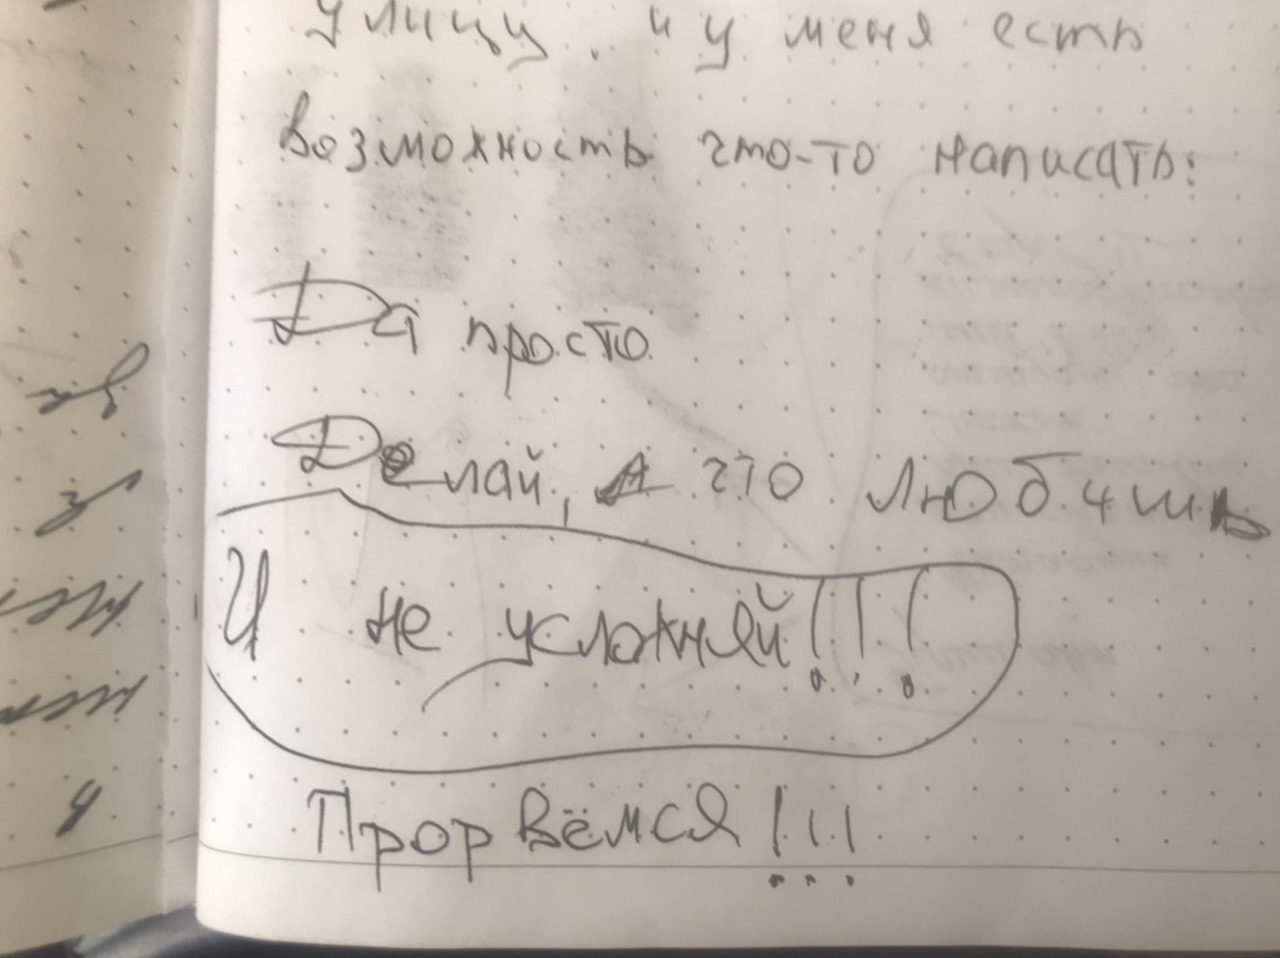 улицу, и у меня есть
возможность что-то написать:
Да просто
Делай, что любишь
И не усложняй!!!
Прорвёмся!!!